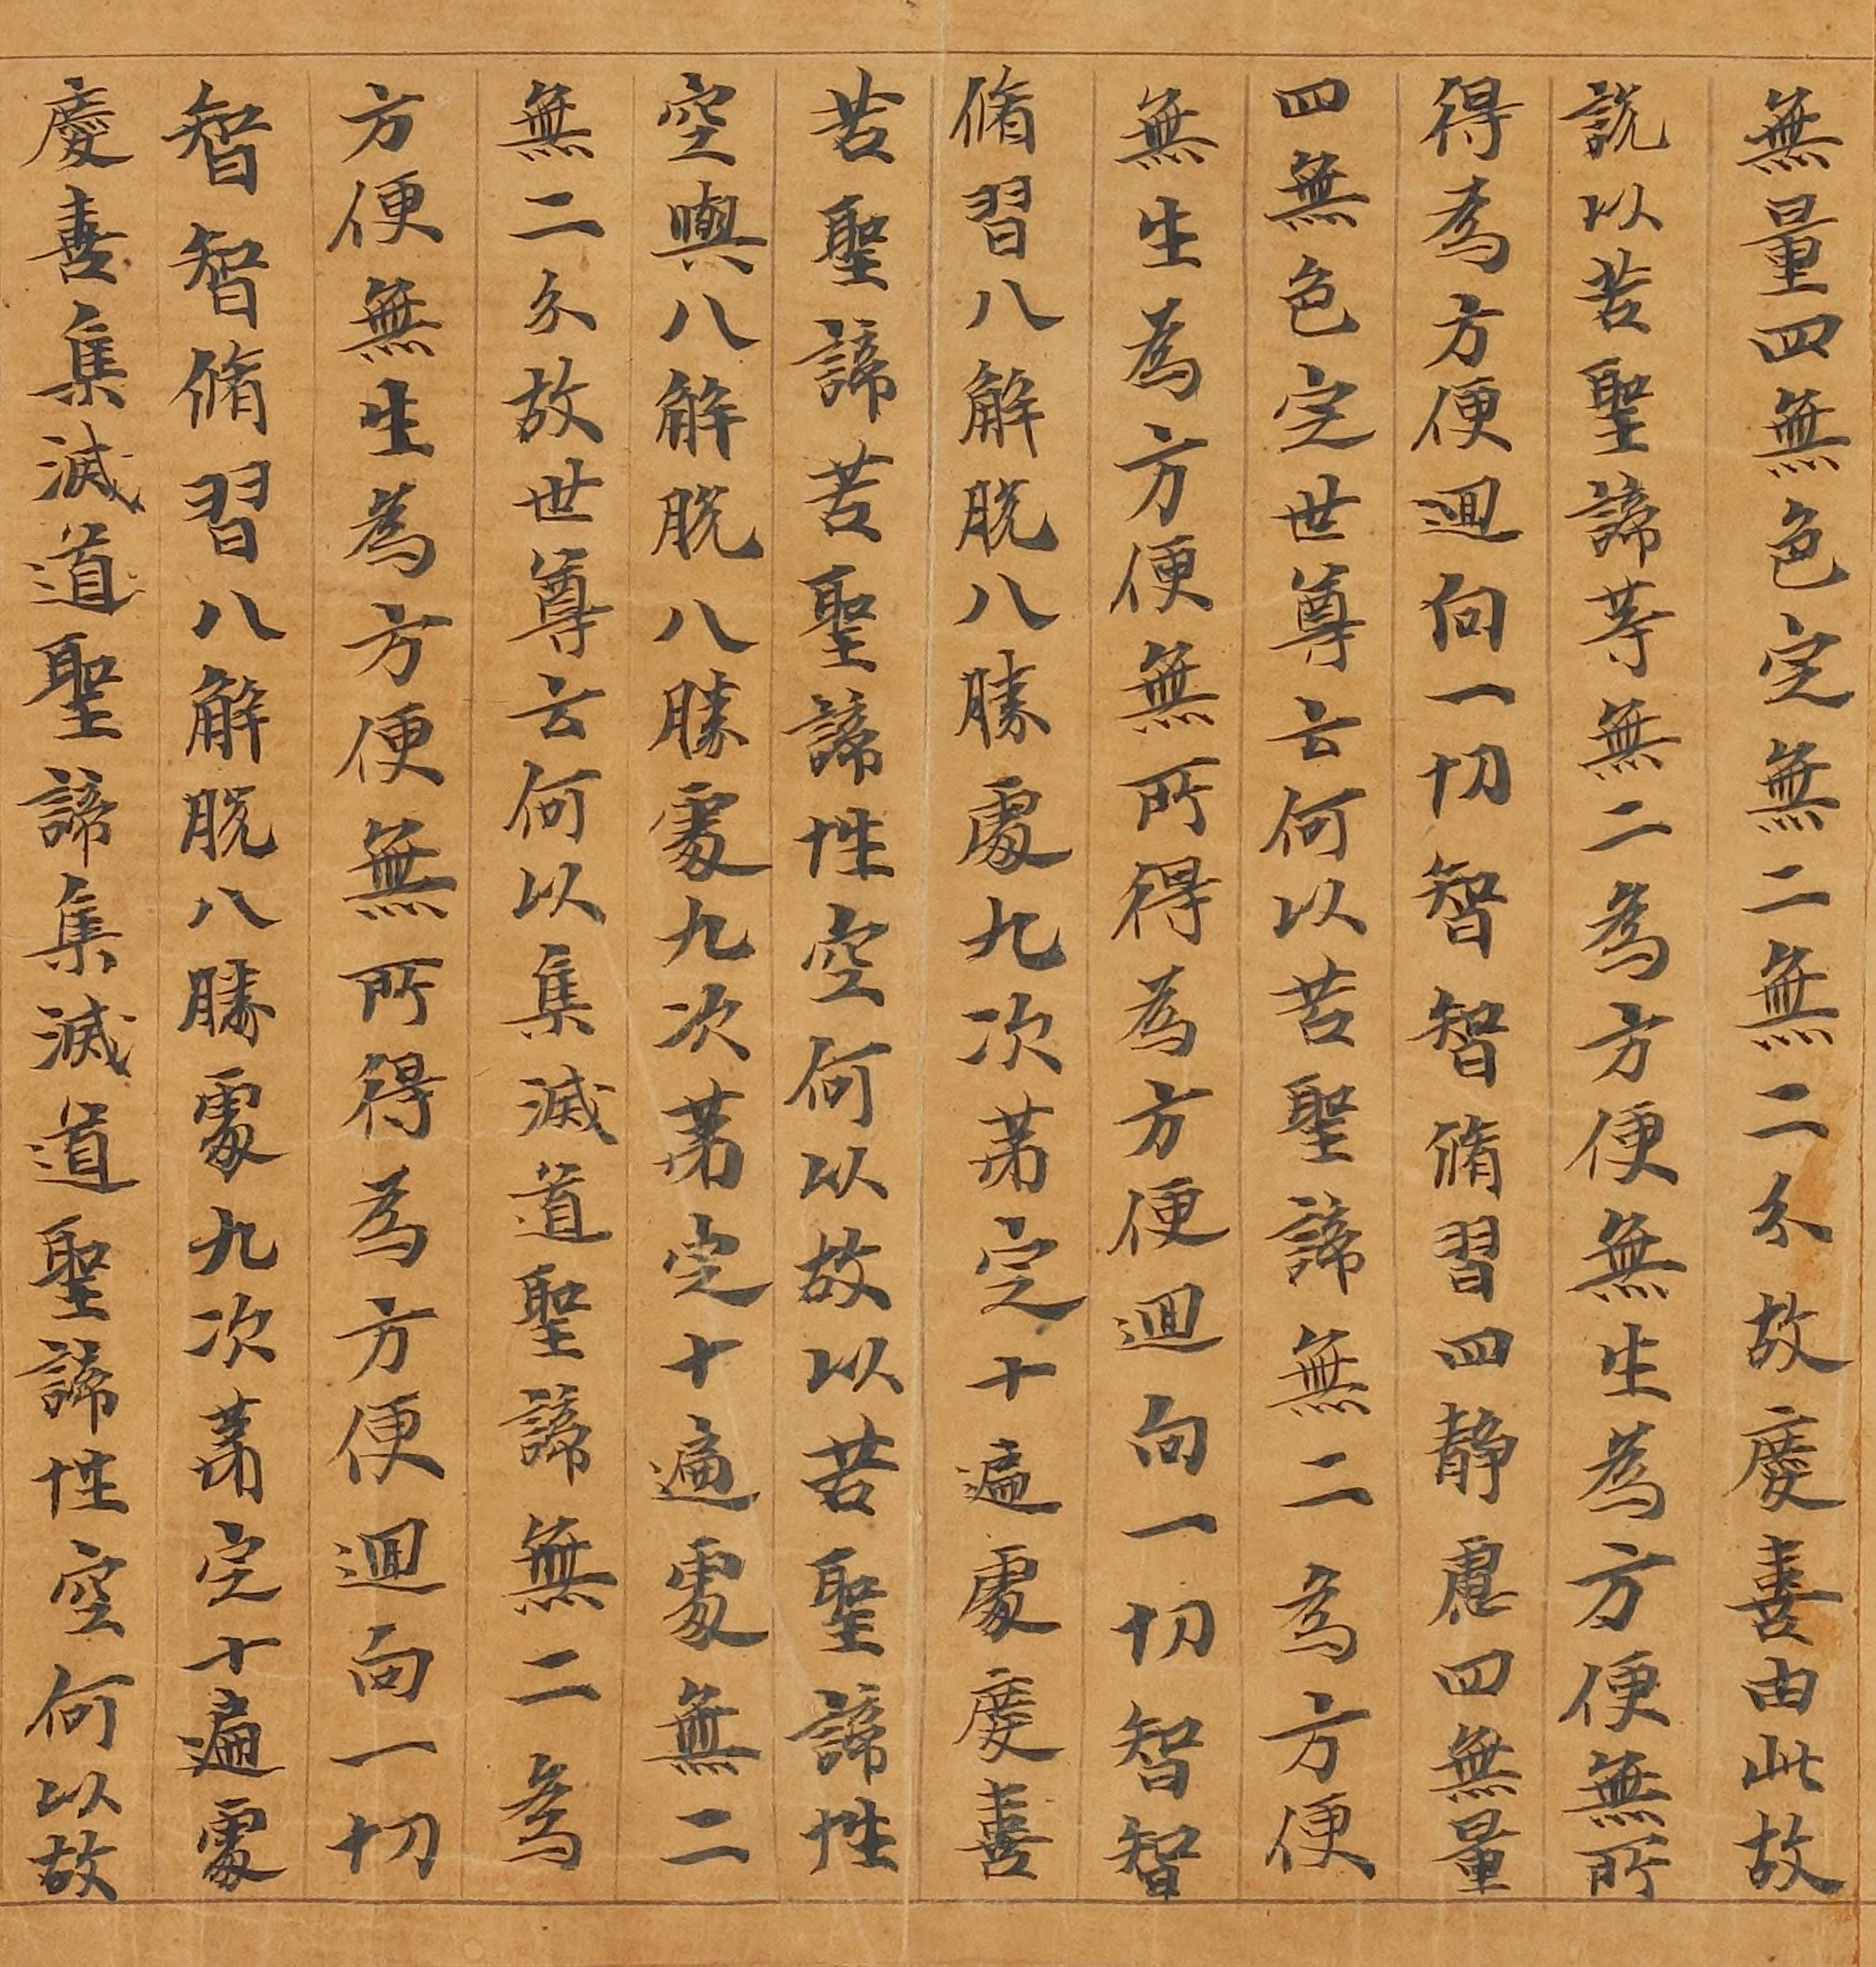 無量四無色定無二無二分故慶喜由此故
說以苦聖諦等無二為方便無生為方便無所
得為方便迴向一切智智脩習四靜慮四無量
四無色定世尊云何以苦聖諦無二為方便
無生為方便無所得為方便迴向一切智智
脩習八解脫八勝處九次第定十遍處慶喜
苦聖諦苦聖諦性空何以故以苦聖諦性
空與八解脫八勝處九次第定十遍處無二
無二分故世尊云何以集滅道聖諦無二為
方便無生為方便無所得為方便迴向一切
智智脩習八解脫八勝處九次第定十遍處
慶喜集滅道聖諦集滅道聖諦性空何以故